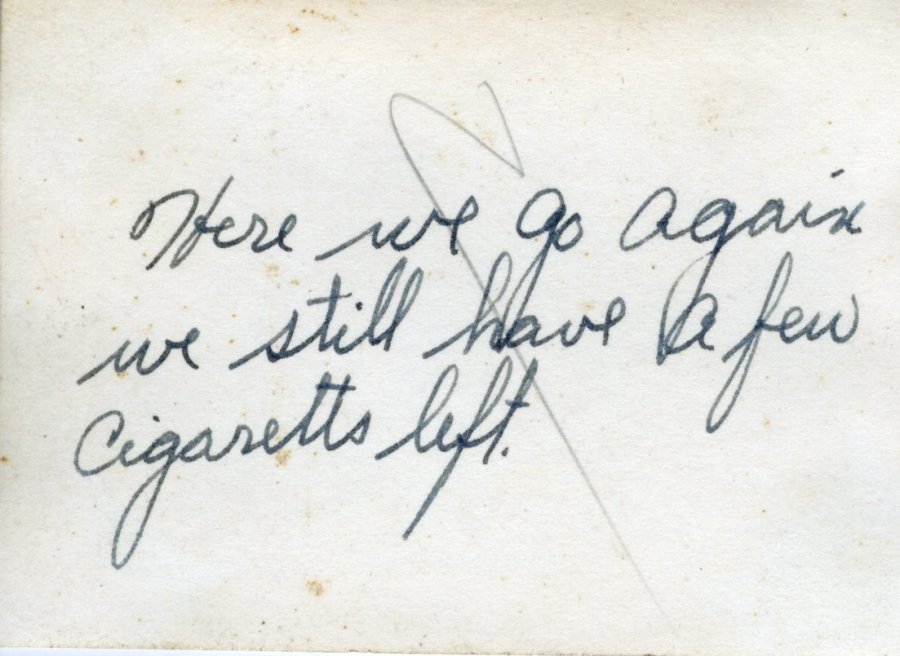 Here we go again
we still have a few
Cigaretts left.